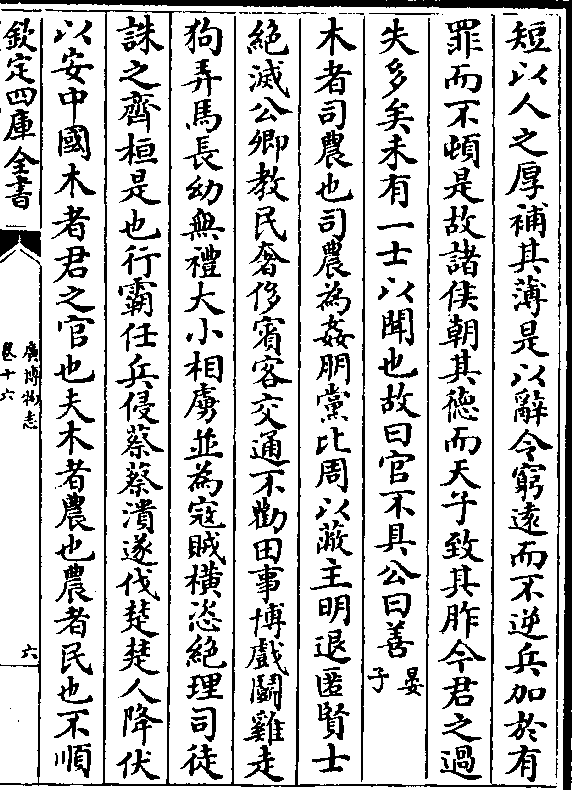 短以人之厚補其薄是以辭令窮遠而不逆兵加於有
罪而不頓是故諸侯朝其德而天子致其胙今君之過
失多矣未有一士以聞也故曰官不具公曰善晏子
木者司農也司農為姦朋黨比周以蔽主明退匿賢士
絕滅公卿教民奢侈賓客交通不勸田事博戲鬭雞走
狗弄馬長幼無禮大小相虜並為寇賊橫恣絕理司徒
誅之齊桓是也行霸任兵侵蔡蔡潰遂伐楚楚人降伏
以安中國木者君之官也夫木者農也農者民也不順
欽定四庫全書
廣博物志
卷十六
六